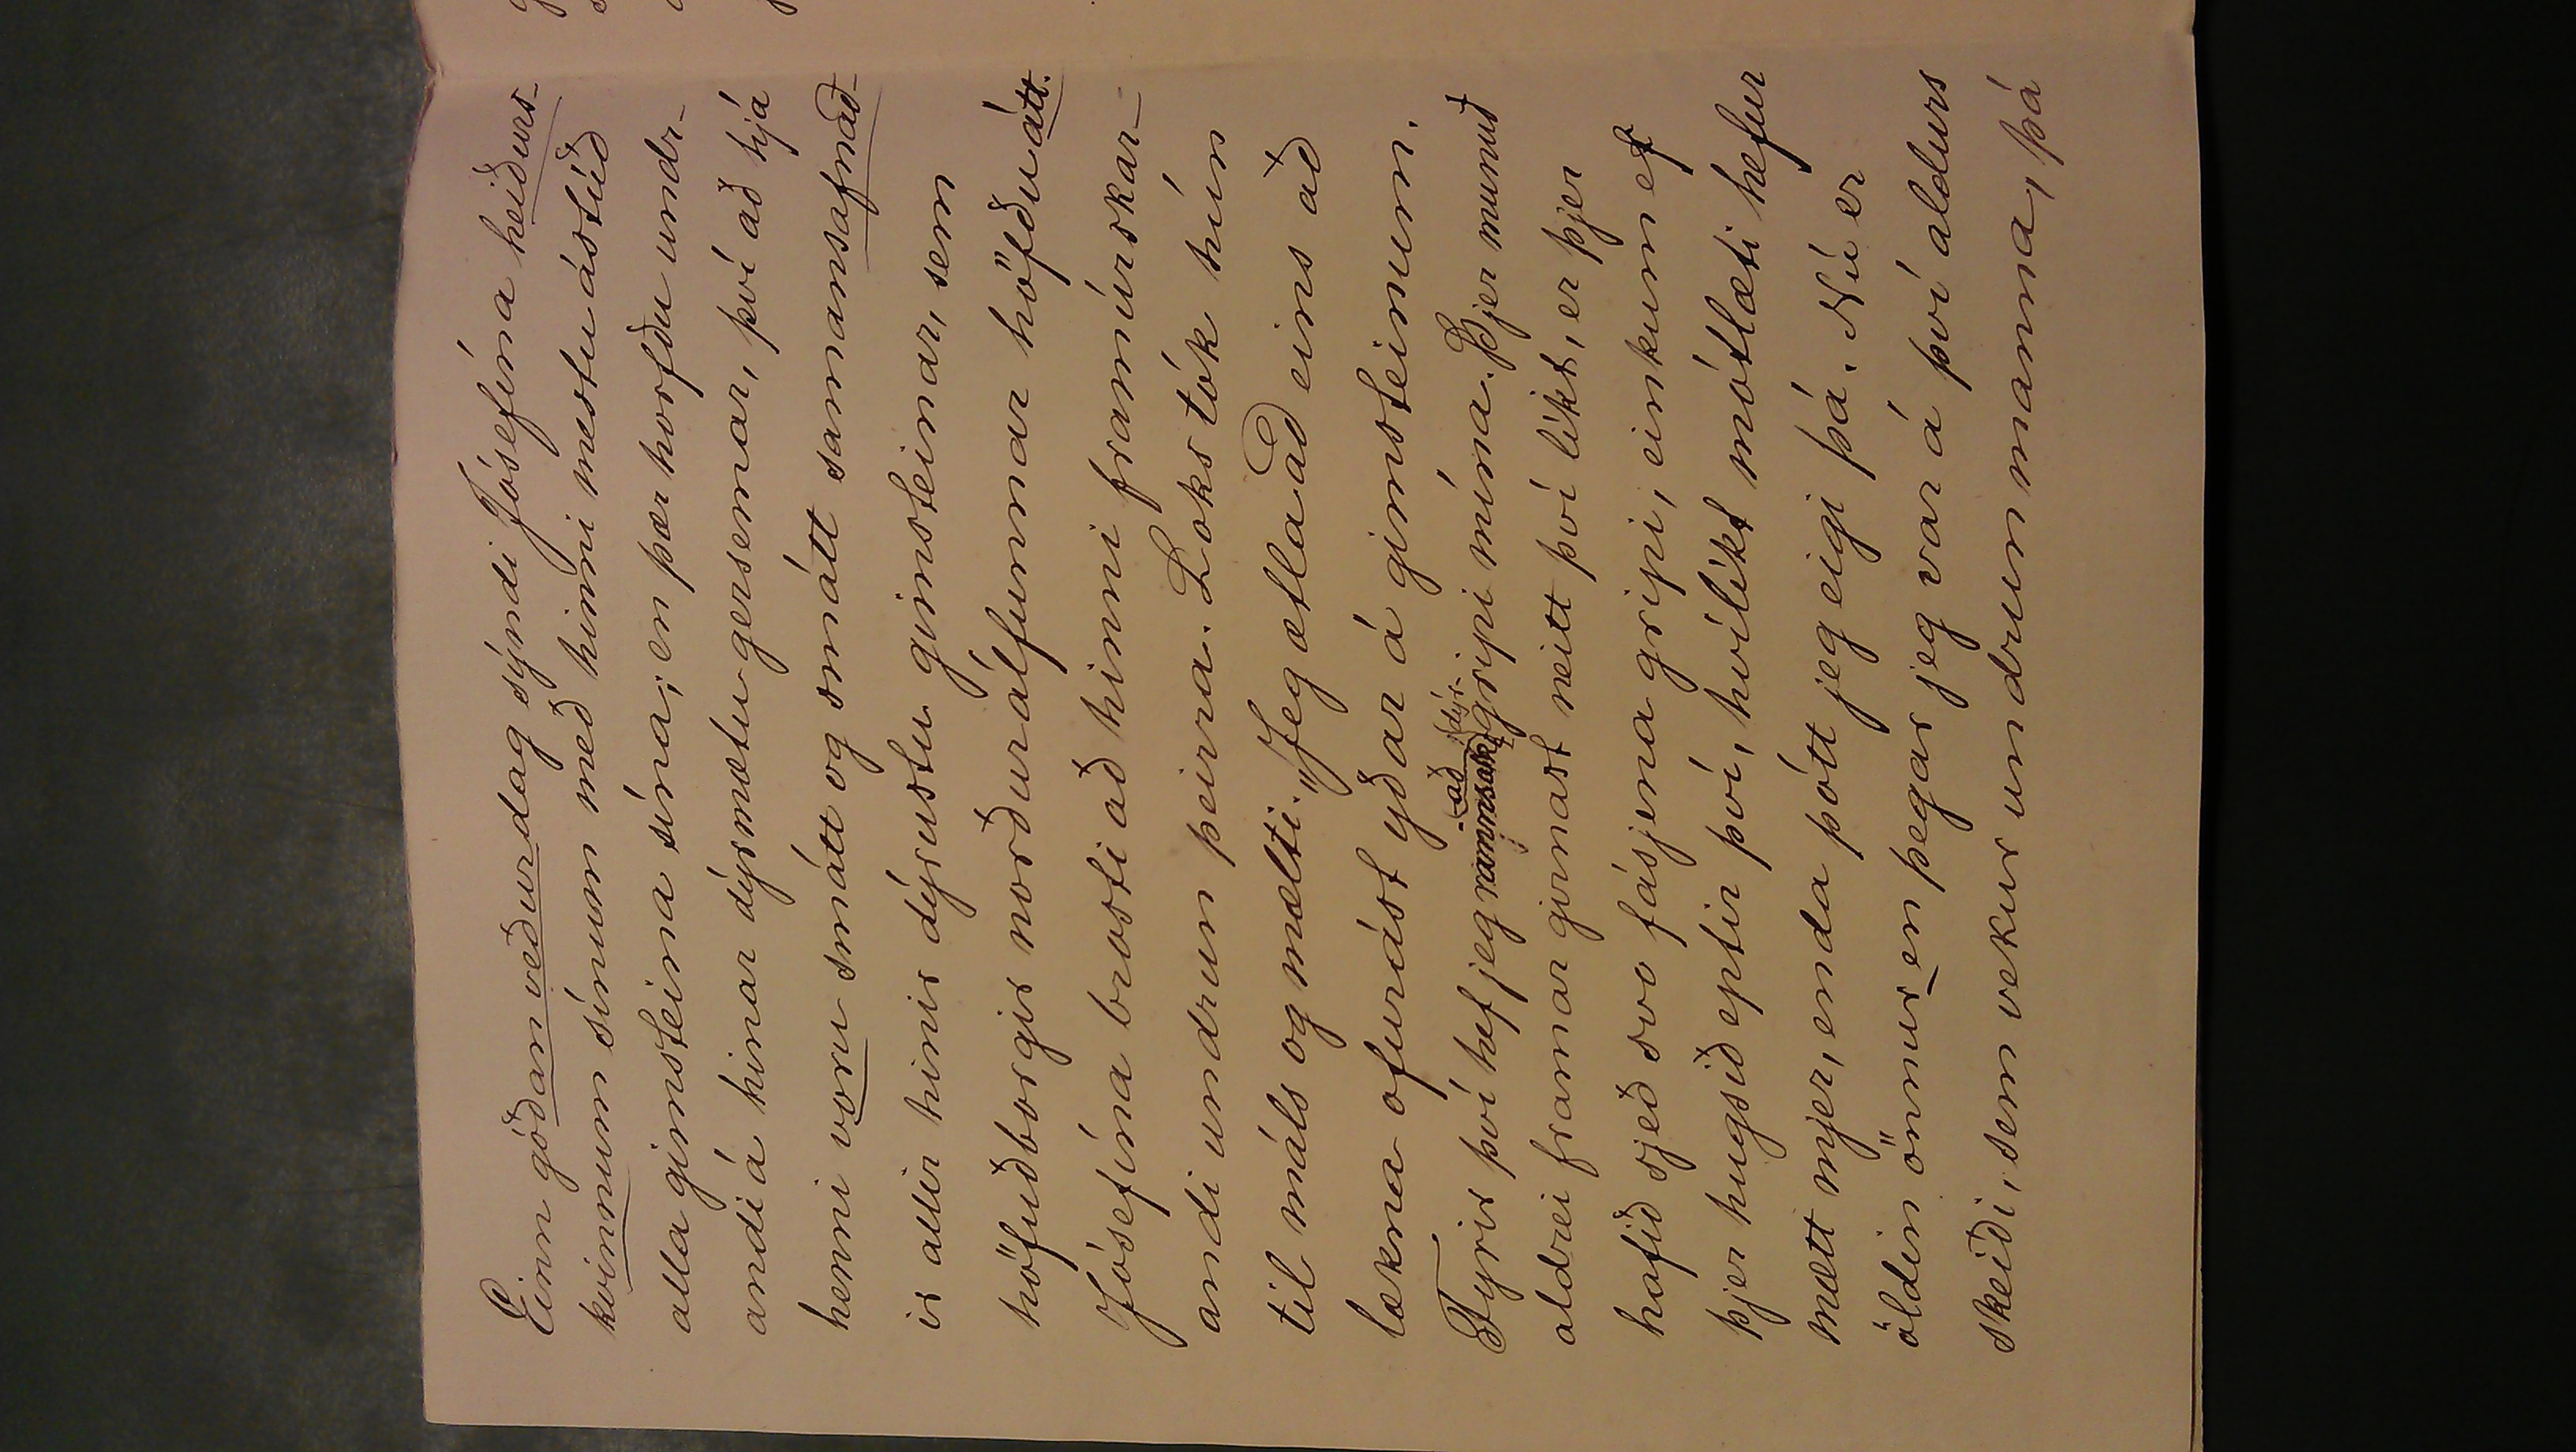 Einn góðan veðurdag sýndi Jósefína heiðurs-
kvinnum sínum með hinni mestu ástúð
alla gimsteina sína; en þær horfðu undr-
andi á hinar dýrmætu gersemar, því að hjá
henni voru smátt og smátt sammansafnað-
ir allir hinir dýrustu gimsteinar, sem
höfuðborgir norðurálfunnar höfðu átt.
Jósefína brosti að hinni framúrskar-
andi undrun þeirra. Loks tók hún
til máls og mælti: „Jeg ætlaði eins að
lækna ofurást yðar á gimsteinum.
að dýr-
Fyrir því hef jeg rannsakað gripi mína. Þjer munuð
aldrei framar girnast neitt því líkt, er þjer
hafið sjeð svo fásjena gripi, einkum ef
þjer hugsið eptir því, hvílíkt mótlæti hefur
mætt mjer, enda þótt jeg eigi þá. Nú er
öldin önnur en þegar jeg var á því aldurs
skeiði, sem vekur undrun manna, þá